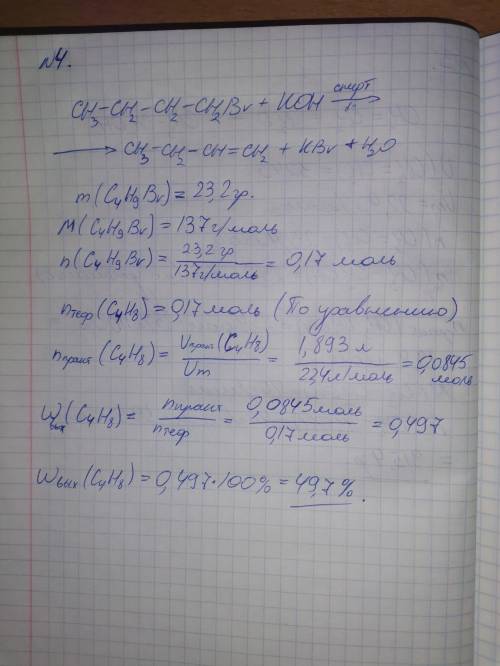 №4.
CH3-CH2-CH2-CH2Br + KOH спирт t° →
→ CH3-CH2-CH=CH2 + KBr + H2O
m(C4H9Br) = 23,2 гр.
M(C4H9Br) = 137 г/моль
n(C4H9Br) = 23,2 гр / 137 г/моль = 0,17 моль
nтеор(C4H8) = 0,17 моль (По уравнению)
nпракт(C4H8) = Vпракт(C4H8) / Vm = 1,893 л / 22,4 л/моль = 0,0845 моль
Wвых(C4H8) = nпракт / nтеор = 0,0845 моль / 0,17 моль = 0,497
Wвых(C4H8) = 0,497·100% = 49,7%.